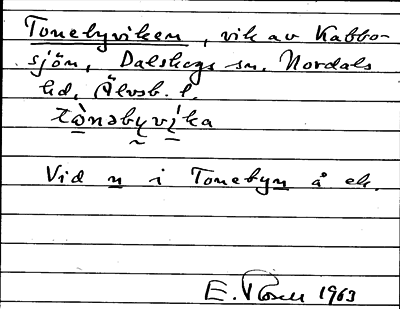 Tonebyviken, vik av Kabbo-
sjön, Dalskogs sn, Nordals
hd, Älvsb. l.
tὼnəbyvíka
Vid n i Tonebyn å ek.
E. Rosell 1963